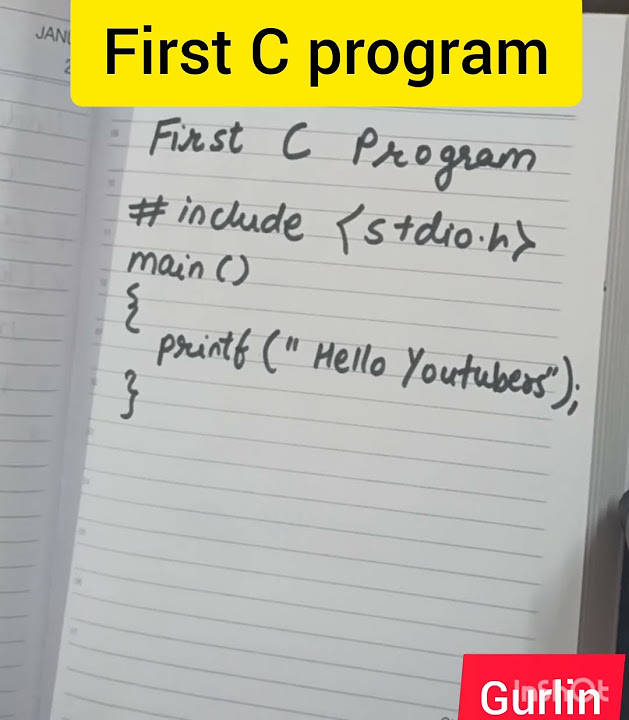 JANU
First C program
First C Program
# include <stdio.h>
main()
{
printf (" Hello Youtubers");
}
Gurlin
InShOt